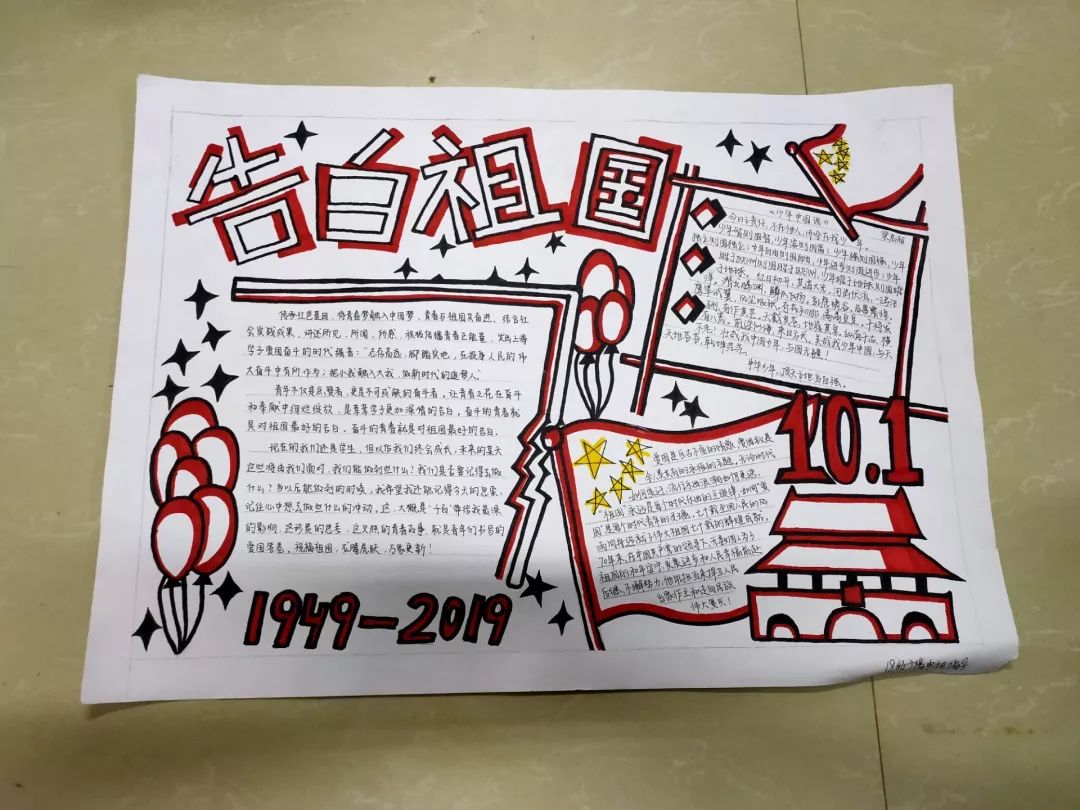 告白祖国
传承红色基因，将青春梦融入中国梦，青春与祖国共奋进。结合社
会实践成果，讲述所见、所闻、所感，积极传播青春正能量，
学子爱国奋斗的时代强音：“志存高远，脚踏实地，在投身人民的伟
大奋斗中有所作为；把小我融入大我，做新时代的追梦人。”
青年不仅是点赞者，更是不可或缺的奋斗者。让青春之花在奋斗
和奉献中绚烂绽放，是莘莘学子更加深情的告白，奋斗的青春就
是对祖国最好的告白。奋斗的青春就是对祖国最好的告白。
现在的我们还是学生，但以后我们终会成长，未来的某天
这些将由我们面对，我们能做到些什么？我们是否要记得去做
什么？当以后能做到的时候，我希望我还能记得今天的思索，
记住心中想去做些什么的冲动，这，大概是“告白”带给我最深
的影响。这珍景的思考，这火热的青春故事，就是青年们书写的
爱国答卷。祝福祖国，龙腾虎跃，万象更新！
1949-2019
《少年中国说》
梁启超
今日之责任，不在他人，而全在我少年。
少年智则国智，少年富则国富；少年强则国强，少年
独立则国独立；少年自由则国自由，少年进步则国进步；少年
胜于欧洲则国胜于欧洲，少年雄于地球则国雄
于地球。红日初升，其道大光。河出伏流，一泻汪
洋。潜龙腾渊，鳞爪飞扬。乳虎啸谷，百兽震惶。
鹰隼试翼，风尘吸张。奇花初胎，矞矞皇皇。干将发
硎，有作其芒。天戴其苍，地履其黄。纵有千古，横
有八荒。前途似海，来日方长。美哉我少年中国，与天
不老！壮哉我中国少年，与国无疆！
10.1
爱国是亘古不变的情感，爱国永是
令
祖国”永远是每个时代乐曲的主旋律，
国”是每个时代青年的灵魂。七十载全国人民的风
雨同舟迎载了伟大祖国七十载的辉煌成就。
70年来，在中国共产党的领导下，无数国人为了
祖国的和平安宁、发展进步和人民幸福前赴
后继、不懈努力，他们担当来捍卫人民
当家作主和走向民族
伟大复兴！